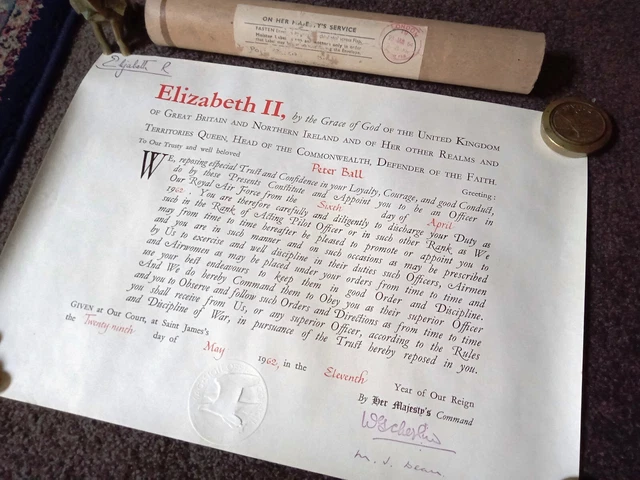 ON HER MAJESTY'S SERVICE
Elizabeth R
Elizabeth II, by the Grace of God OF THE UNITED KINGDOM
OF GREAT BRITAIN AND NORTHERN IRELAND AND OF HER OTHER REALMS AND
TERRITORIES QUEEN, HEAD OF THE COMMONWEALTH, DEFENDER OF THE FAITH.
To Our Trusty and well beloved Peter Ball Greeting:
WE, reposing especial Trust and Confidence in your Loyalty, Courage, and good Conduct,
do by these Presents Constitute and Appoint you to be an Officer in
Our Royal Air Force from the Sixth day of April
1962. You are therefore carefully and diligently to discharge your Duty as
such in the Rank of Acting Pilot Officer or in such other Rank as We
may from time to time hereafter be pleased to promote or appoint you to
and you are in such manner and on such occasions as may be prescribed
by Us to exercise and well discipline in their duties such Officers, Airmen
and Airwomen as may be placed under your orders from time to time and
use your best endeavours to keep them in good Order and Discipline.
And We do hereby Command them to Obey you as their superior Officer
and you to Observe and follow such Orders and Directions as from time to time
you shall receive from Us, or any superior Officer, according to the Rules
and Discipline of War, in pursuance of the Trust hereby reposed in you.
GIVEN at Our Court, at Saint James's
the Twenty ninth day of May 1962, in the Eleventh Year of Our Reign
By Her Majesty's Command
M. J. Dean